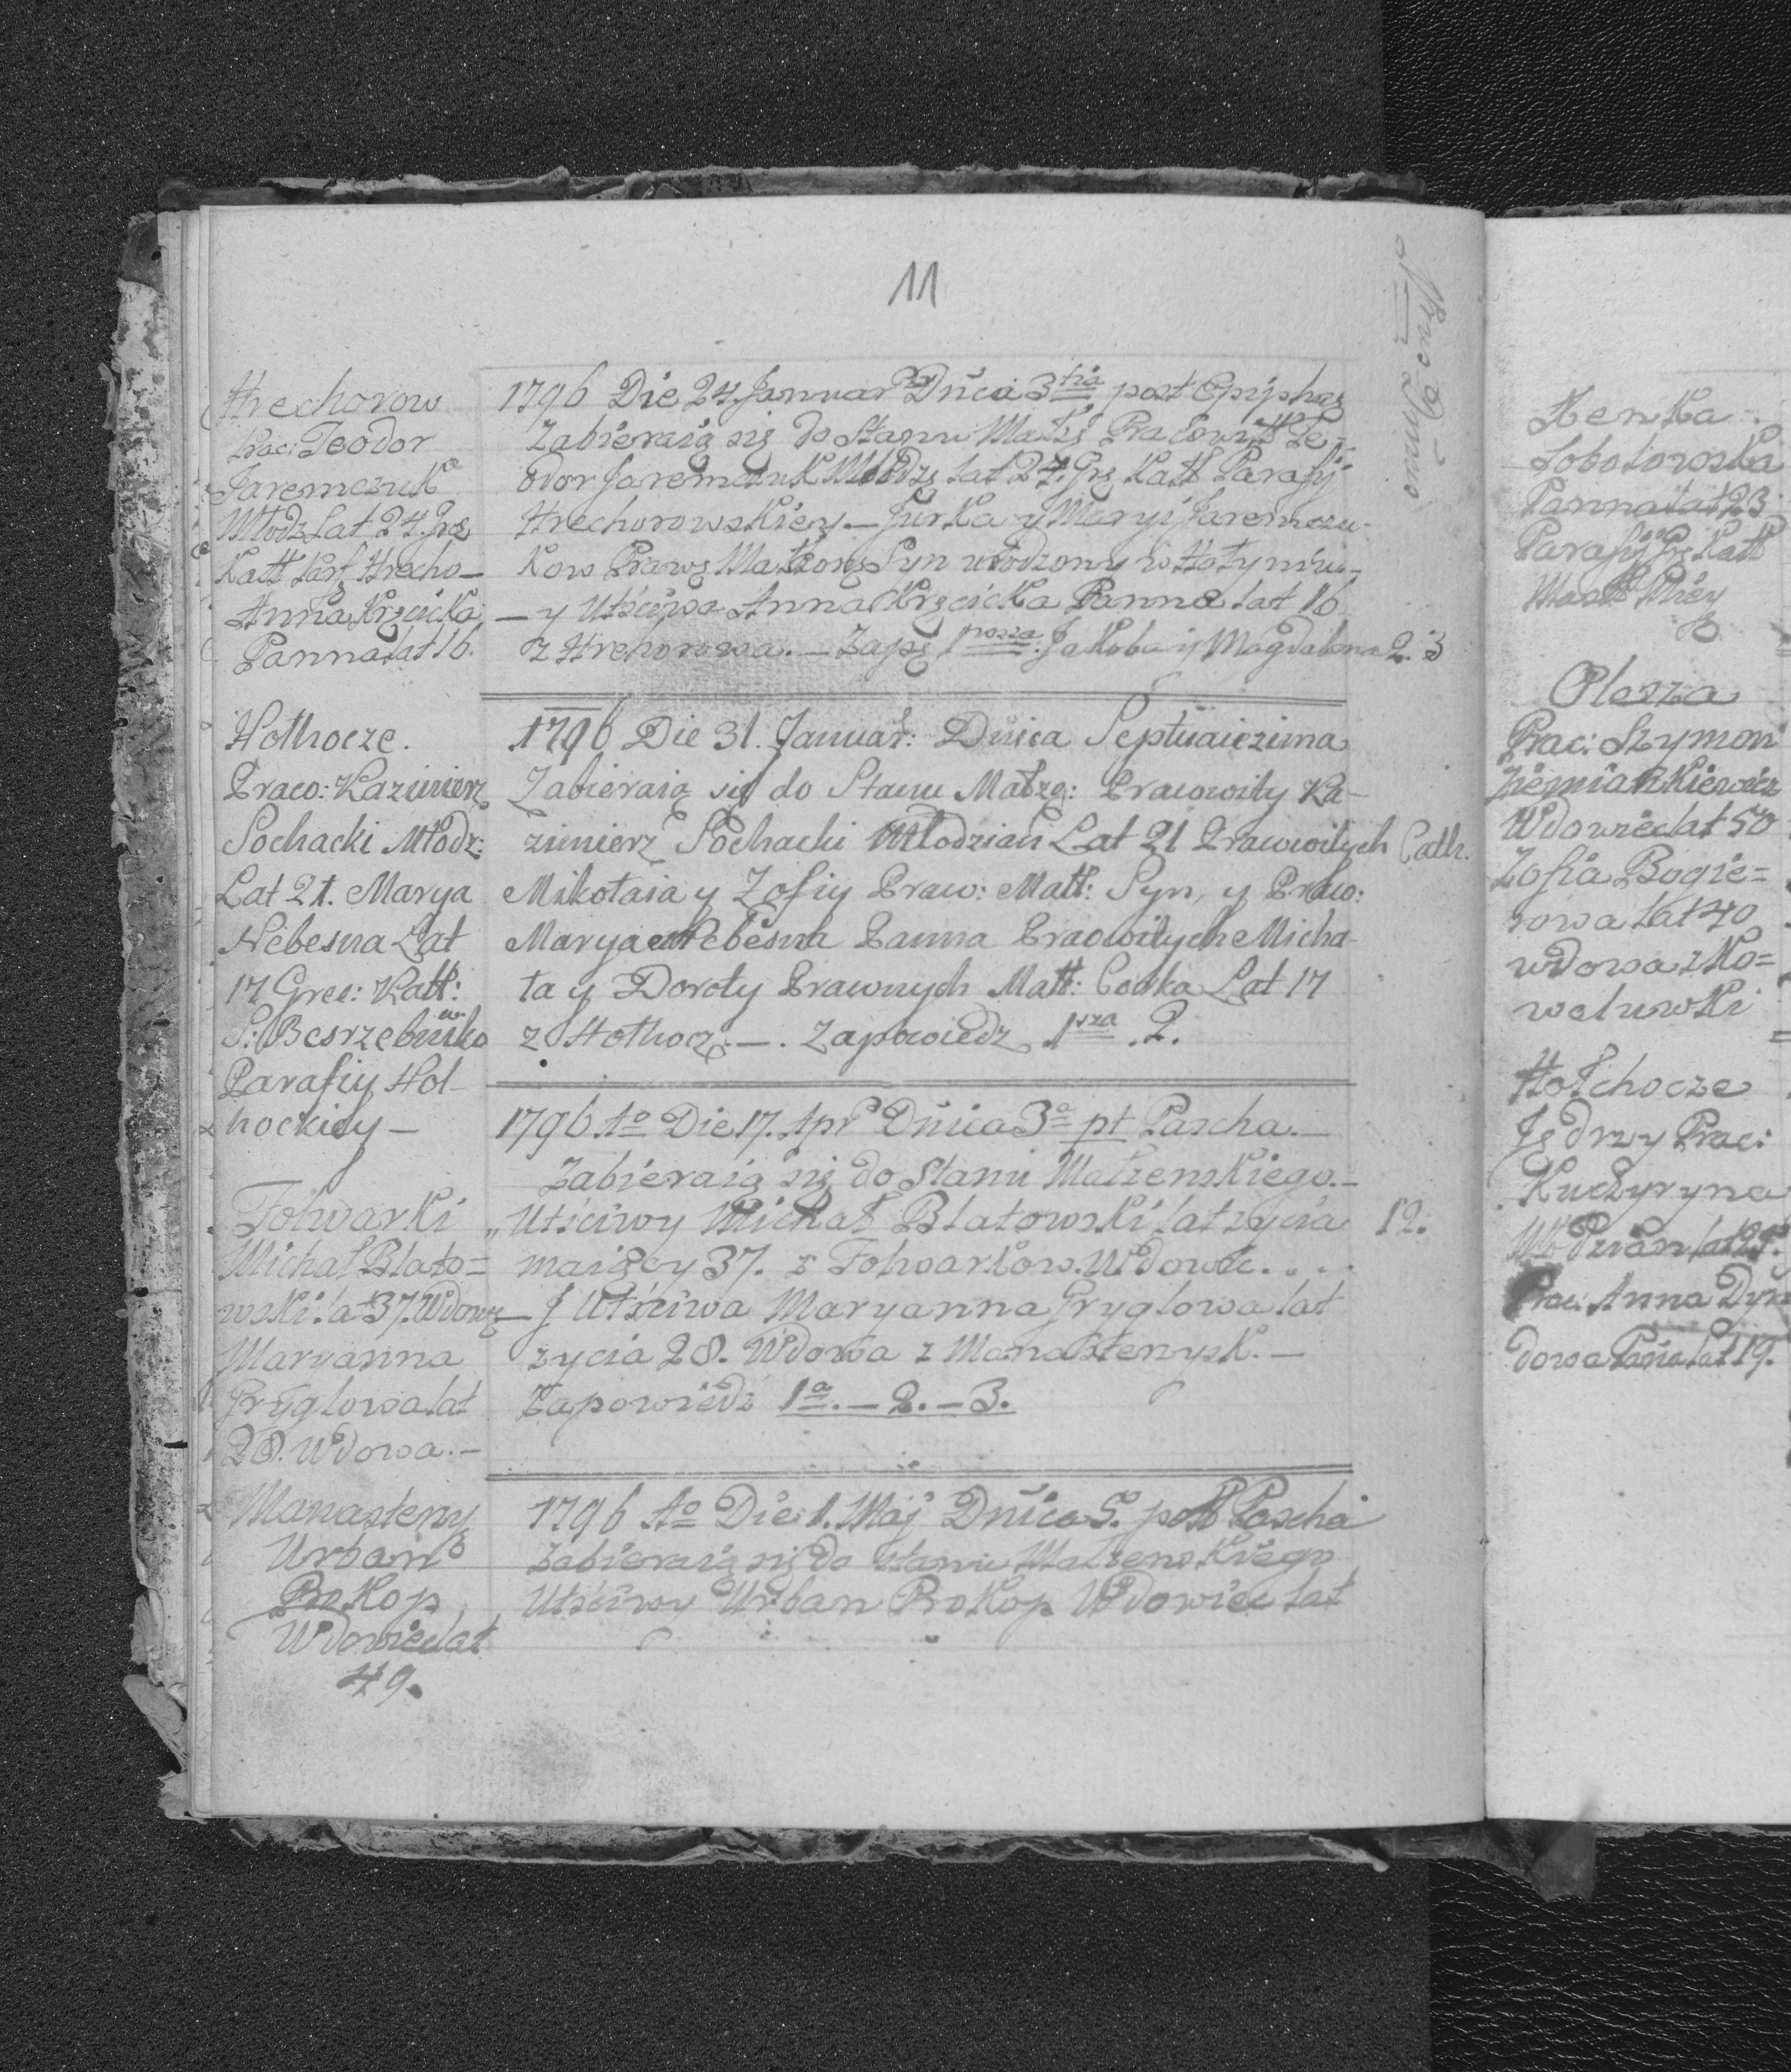 11
Hrechorow
Prac: Teodor
Jaremczuk
Młodz Lat 24 Gre
Katt Parf Hrecho_
Anna Krzcicka
Panna lat 16.
1796 Die 24. Januar Dnica 3tia post Epiphan
Zabieraią się do Stanu Małż Pracowitt Te=
odor Jaremczuk Młodz lat 24. Gre Katt Parafij
Hrechorowskiey _ Jurka y Maryi Jaremczu-
kow Praw Małżon Syn urodzony w Hołyniu
_ y Utściwa Anna Krzcicka Panna lat 16
z Hrehorowa. _ Zap 1wsza Jakoba y Magdalena 2. 3
Hothocze.
Praco: Kazimierz
Sochacki Młodz:
Lat 21. Marya
Nebesna Lat
17 Grec: Katt:
Parafiy Hol-
hockiey _
1796 Die 31. Januar: Dnica Septuaiezima
Zabieraią się do Stanu Małżę: Pracowity Ka-
zimierz Sochacki Młodzian Lat 21 Pracowitych Cath.
Mikołaia y Zofiy Praw: Matt: Syn, y Praco:
Marya Nebesna Panna Pracowitych Micha-
ła y Doroty Prawnych Matt: Corka Lat 17
z Hothocz. _ . Zapowiedz 1sza . 2.
Folwarki
Michał Błato=
wski lat 37. Wdow
Maryanna
Gryglowa lat
28. Wdowa. _
1796 Ao Die 17. Apr Dnica 3a pt Pascha. _
Zabieraią się do Stanu Małżenskiego. _
Utściwy Michał Błatowski lat życia 12.
maiący 37. z Folwarków. Wdowiec. . . .
_ J Utściwa Maryanna Gryglowa lat
życia 28. Wdowa z Manasterzysk. _
Zapowiedź 1a. _ 2. _ 3.
Manasterzy
Urban
Prokop
Wdowiec lat
49.
1796 Ao Die 1. Maj Dnica 5. post Pascha
Zabieraią się do stanu Małżenskiego
Utściwy Urban Prokop Wdowiec lat
Sobotowska
Panna lat 23
Parafij Gre Katt
Olesza
Prac: Szymon
Ziemiankiewicz
Wdowiec lat 50
Zofia Bogie=
rowa lat 40
wdowa z Ko=
waluwki
Hołchocze
Jędrzy Prac:
Kuczyryna
Młodzian lat 25.
Prac: Anna Dyn
dowa Pana lat 19.